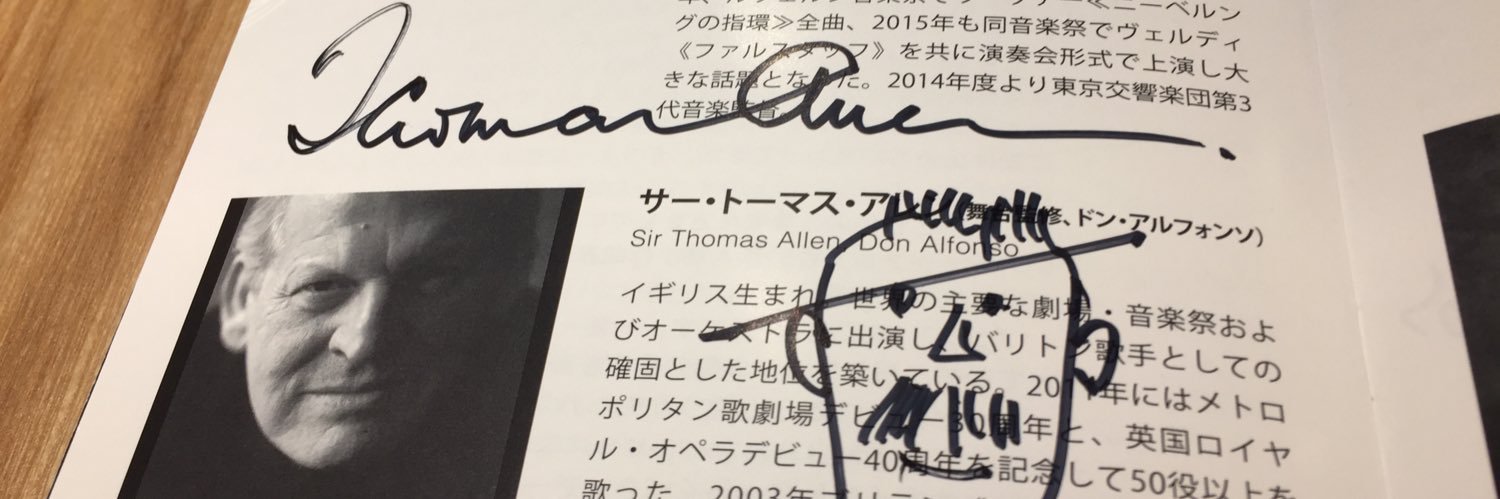 グの指環≫全曲、2015年も同音楽祭でヴェルディ
《ファルスタッフ》を共に演奏会形式で上演し大
きな話題となった。2014年度より東京交響楽団第3
代音楽監督。
Thomas Allen
サー・トーマス・アレン（舞台監修、ドン・アルフォンソ）
Sir Thomas Allen, Don Alfonso
イギリス生まれ。世界の主要な劇場・音楽祭およ
びオーケストラに出演し、バリトン歌手としての
確固とした地位を築いている。2011年にはメトロ
ポリタン歌劇場デビュー30周年と、英国ロイヤ
ル・オペラデビュー40周年を記念して50役以上を
歌った。2003年